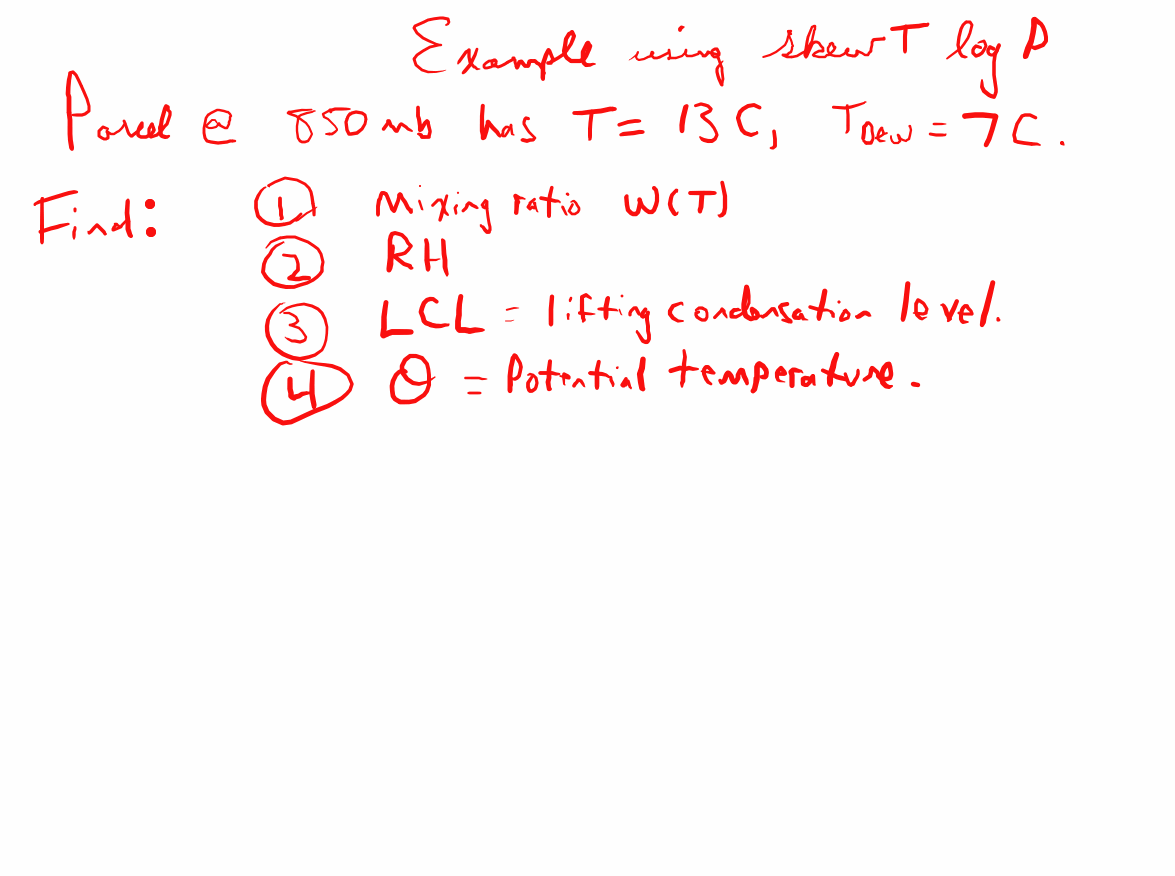 Example using skew T log P
Parcel @ 850 mb has T = 13 C, TDew = 7 C.
Find: ① Mixing ratio W(T)
② RH
③ LCL = lifting condensation level.
④ Θ = Potential temperature.